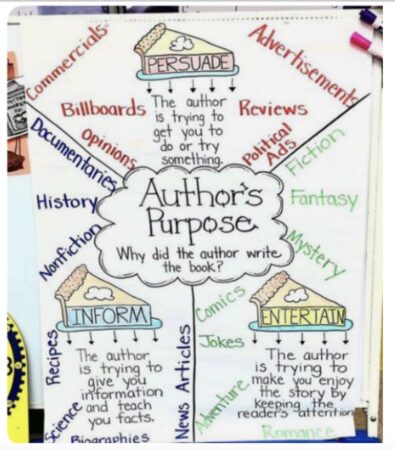 Commercials
Advertisements
PERSUADE
Billboards
The author
is trying to
get you to
do or try
something.
Reviews
Opinions
Political
Ads
Documentaries
History
Nonfiction
Author's
Purpose
Why did the author write
the book?
Fiction
Fantasy
Mystery
INFORM
Recipes
The author
is trying to
give you
information
and teach
you facts.
Science
Biographies
News Articles
Comics
Jokes
Adventure
ENTERTAIN
The author
is trying to
make you enjoy
the story by
keeping the
reader's attention
Romance